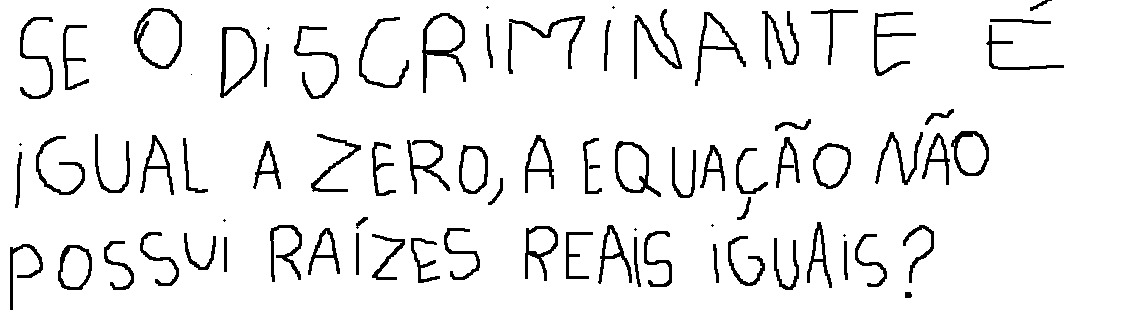 SE O DISCRIMINANTE É
IGUAL A ZERO, A EQUAÇÃO NÃO
POSSUI RAÍZES REAIS IGUAIS?